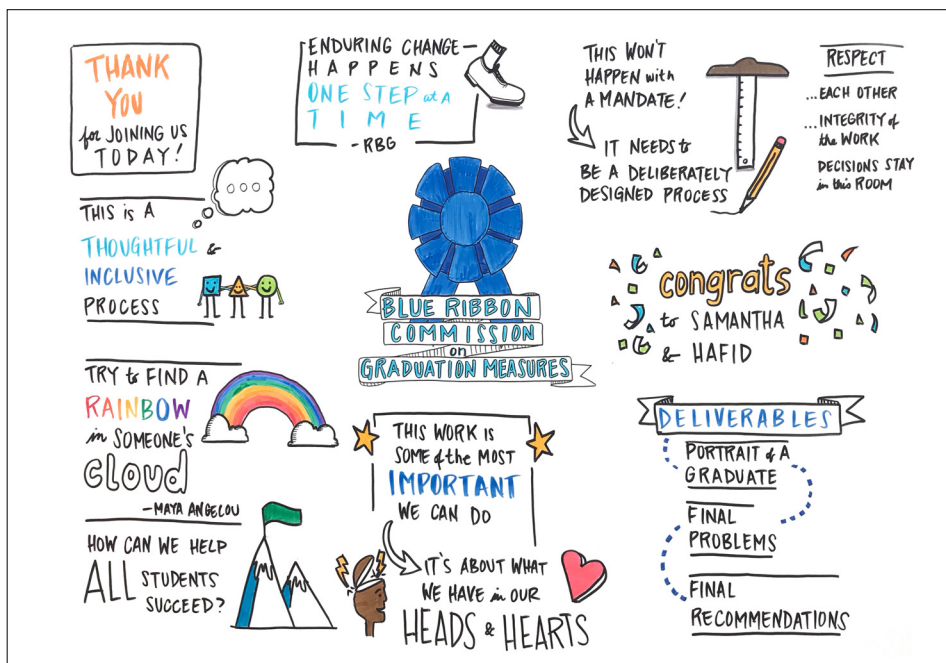 THANK
YOU
for JOINING US
TODAY!
THIS is A
THOUGHTFUL &
INCLUSIVE
PROCESS
TRY to FIND A
RAINBOW
in SOMEONE'S
CLOUD
-MAYA ANGELOU
HOW CAN WE HELP
ALL STUDENTS
SUCCEED?
ENDURING CHANGE
HAPPENS
ONE STEP at A
TIME
- RBG
BLUE RIBBON
COMMISSION
on
GRADUATION MEASURES
THIS WORK IS
SOME of the MOST
IMPORTANT
WE CAN DO
IT'S ABOUT WHAT
WE HAVE in OUR
HEADS & HEARTS
THIS WON'T
HAPPEN with
A MANDATE!
IT NEEDS to
BE A DELIBERATELY
DESIGNED PROCESS
RESPECT
...EACH OTHER
...INTEGRITY of
the WORK
DECISIONS STAY
in this ROOM
congrats
to SAMANTHA
& HAFID
DELIVERABLES
PORTRAIT of A
GRADUATE
FINAL
PROBLEMS
FINAL
RECOMMENDATIONS